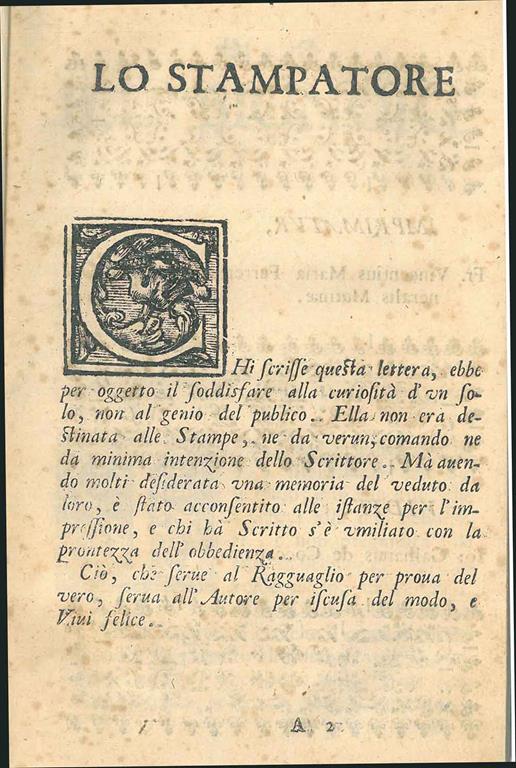 LO STAMPATORE
CHi ſcriſſe queſta lettera, ebbe
per oggetto il ſoddisfare alla curioſità d'vn ſo-
lo, non al genio del publico.. Ella non era de-
ſtinata alle Stampe, ne da verun, comando ne
da minima intenzione dello Scrittore.. Mà auen-
do molti deſiderata vna memoria del veduto da
loro, è ſtato acconſentito alle iſtanze per l'im-
preſſione, e chi hà Scritto s'è vmiliato con la
prontezza dell'obbedienza..
Ciò, che ſerue al Ragguaglio per proua del
vero, ſerua all'Autore per iſcuſa del modo, e
Viui felice..
A 2
IMPRIMATVR,
Fr. Vincentius Maria Ferre
neralis Mutinæ.